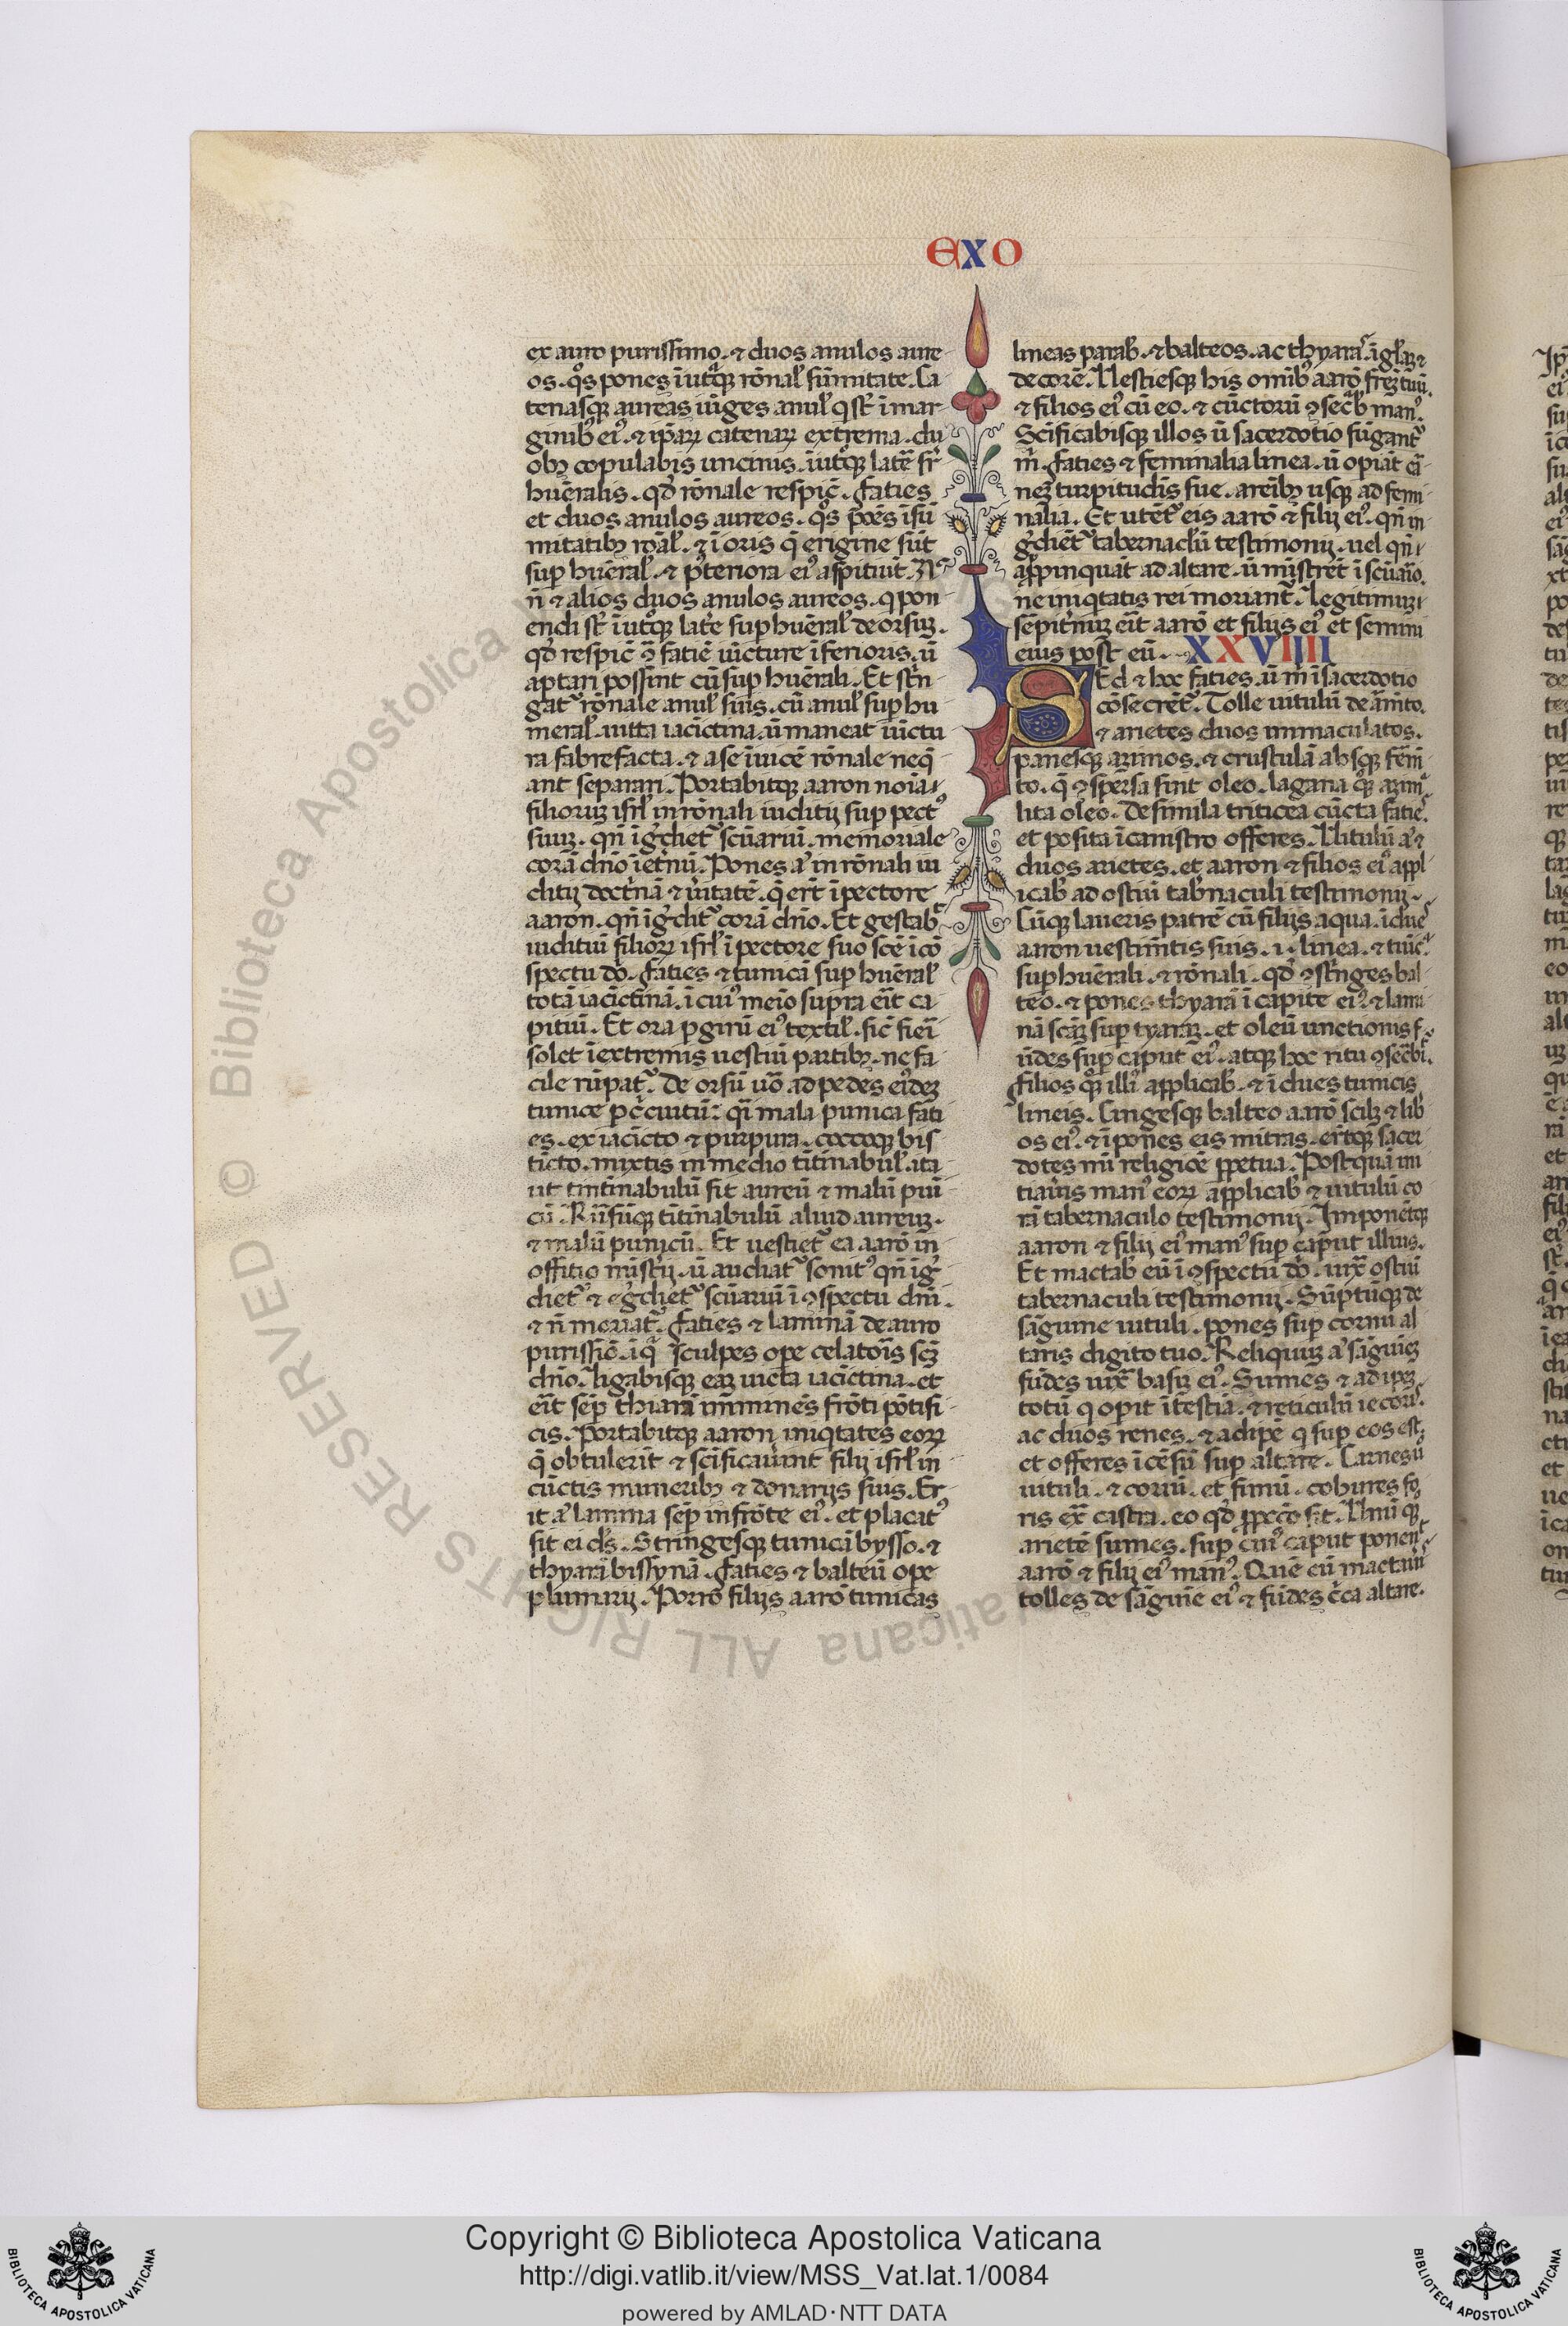 EXO
ex auro purissimo. ⁊ duos anulos aure
os. q̊s pones ĩ ut̃q; rõnal' sũmitate. Ca
tenasq; aureas iũges anul' q sr̃ ĩ mar
ginib; ei'. ⁊ ip̃aꝝ catenaꝝ extrema. du
ob; copulabis uncinis. ĩ ut̃q; late s̃r
huẽralis. qđ rõnale respic̃. Faties
et duos anulos aureos. q̊s põẽs ĩ sũ
mitatib; rõal'. ⁊ ĩ oris q̃ erigiõne sũt
suꝑ huẽral'. ⁊ p̃teriora ei' aspitiũt. Nc̃
ñ ⁊ alios duos anulos aureos. q pon
endi sr̃ ĩ ut̃q; late suꝑ huẽral' deorsuꝫ.
qđ respic̃ ꝯ fatiẽ iũcture ĩferioris. ũ
aptari possint cũ suꝑ huẽrali. Et str̃n
gat' rõnale anul' suis. cũ anul' suꝑ hu
meral'. uitta iacĩctina. ũ maneat iũctu
ra fabrefacta. ⁊ a se ĩuicẽ rõnale neq̃
ant separari. Portabitq; aaron noĩa
filioruꝫ isrl' in rõnali iuditij suꝑ pect'
suuꝫ. qñ ĩg̃diet' scũariũ. memoriale
corã dño ĩ et̃nũ. Pones a' in rõnali iu
ditij doct̃nã ⁊ ũitatẽ. q̃ ert̃ ĩ pectore
aaron. qñ ĩg̃dit' corã dño. Et gestab'
iuditiũ filioꝝ isrl' ĩ pectore suo scẽ ĩ cõ
spectu dõ. Faties ⁊ tunicã suꝑ huẽral'
totã iacĩctinã. ĩ cui' meĩo supra eĩt ca
pitiũ. Et ora ꝑ girũ ei' textil'. sic̃ fieĩ
solet ĩ extremis uestiũ partib;. ne fa
cile rũpat'. De orsũ uõ ad pedes ei'deꝫ
tunice ꝑ c̃cuitũ: q̃i mala punica fati
es. ex iacĩcto ⁊ purpura. coccoq; bis
tĩcto. mixtis in medio tĩtinabul'. ita
ut tintĩnabulũ sit aureũ ⁊ malũ puni
cũ. Rũsũq; tĩtinabulũ aliud aureuꝫ.
⁊ malũ punicũ. Et uestiet' ea aarõ in
offitio mĩstr̃ij. ũ audiat' sonit' qñ ĩg̃
diet' ⁊ eg̃diet' scũariũ ĩ ꝯspectu dñi.
⁊ ñ moriat'. Faties ⁊ laminã de auro
purissiõ. ĩ q̃ sculpes ope celatoĩs scꝫ
dño. Ligabisq; eaꝫ uicta iacĩctina. et
eĩt sẽꝑ thiarã ĩminẽs frõti põtifi
cis. Portabitq; aaron iniqtates eoꝝ
q̃ obtulerĩt ⁊ scĩficauũnt filij isrl' in
cũctis munerib; ⁊ donarijs suis. Er
it a' lamina sẽꝑ in frõte ei'. et placat'
sit ei dñs. Stringesq; tunicã bysso. ⁊
thyarã bissynã. Faties ⁊ balteũ ope
plumarij. Porro filijs aarõ tunicas
lineas parab'. ⁊ balteos. ac thyaras ĩ gl'aꝫ ⁊
decorẽ. Uestiesq; his omib' aarõ fr̃eꝫ tuũ.
⁊ filios ei' cũ eo. ⁊ cũctorũ ꝯsec̃b' man'.
Scĩficabisq; illos ũ sacerdotio fũgant'
m̃. Faties ⁊ feminalia linea. ũ opiãt cã
neꝫ turpitudĩs sue. a reĩb; usq; ad femi
nalia. Et utẽt' eis aarõ ⁊ filij ei'. qñ in
g̃diẽt' tabernac'lũ testimonij. uel qñ
appinquãt ad altare. ũ mĩstrẽt ĩ scũaĩo.
ne iniqtatis rei moriant'. Legitimuꝫ
sẽpit̃nuꝫ eĩt aarõ et filijs ei' et semini
eius post eũ. XXVIIII
SEd ⁊ hoc faties. ũ m̃ ĩ sacerdotio
cõsecrẽt'. Tolle uitulũ de arm̃to.
⁊ arietes duos immaculatos.
panesq; azimos. ⁊ crustulã absq; ferm̃
to. q̃ ꝯspersa sint oleo. lagana q̊q; azima
lita oleo. De simila triticea cũcta faties.
et posita ĩ canistro offeres. Uitulũ a' ⁊
duos arietes. et aaron ⁊ filios ei' appl
icab' ad ostiũ tab'naculi testimonij.
Cũq; laueris patrẽ cũ filijs aqua. ĩdues
aaron uestim̃tis suis. i. linea. ⁊ tunica
suꝑ huẽrali. ⁊ rõnali. qđ ꝯstr̃nges bal
teo. ⁊ pones thyarã ĩ capite ei'. ⁊ lami
nã scãꝫ suꝑ tyarãꝫ. et oleũ unctionis f
ũdes suꝑ caput ei'. atq; hoc ritu ꝯsec̃bit'.
Filios q̊q; illi' applicab'. ⁊ ĩdues tunicis
lineis. Cingesq; balteo aarõ scilꝫ ⁊ lib
os ei'. ⁊ ĩpones eis mitras. er̃tq; sacer
dotes mĩ religiõe ꝑpetua. Postquã ini
tiau̇is man' eoꝝ applicab' ⁊ uitulũ co
rã tabernaculo testimonij. Imponẽtq;
aaron ⁊ filij ei' man' suꝑ caput illius.
Et mactab' eũ ĩ ꝯspectu dõ. iux̃ ostiũ
tabernaculi testimonij. Sũptũq; de
sãguine uituli. pones suꝑ cornu al
taris digito tuo. Reliquuꝫ a' sãguĩeꝫ
fũdes iux̃ basij ei'. Sumes ⁊ adipeꝫ
totũ q opit ĩtestiã. ⁊ reticulũ iecoris.
ac duos renes. ⁊ adipẽ q suꝑ eos est.
et offeres ĩcẽsũ suꝑ altare. Carnes ũ
uituli. ⁊ coriũ. et fimũ. cobures fo
ris ex̃ castra. eo qđ ꝓ pecc̃o sit. Unũ q̊q;
arietẽ sumes. suꝑ cui' caput ponent
aarõ ⁊ filij ei' man'. Quẽ cũ mactau̇is
tolles de sãguĩe ei' ⁊ fũdes c̃ca altare.
© Biblioteca Apostolica Vaticana ALL RIGHTS RESERVED
Copyright © Biblioteca Apostolica Vaticana
http://digi.vatlib.it/view/MSS_Vat.lat.1/0084
powered by AMLAD·NTT DATA
BIBLIOTECA APOSTOLICA VATICANA
BIBLIOTECA APOSTOLICA VATICANA